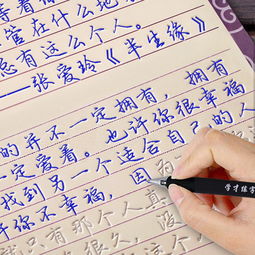 管在什么地
总有这么个人。
——张爱玲《半生缘》
的并不一定拥有，拥有
一定爱着。也许你很幸福
找到另一个适合自己的人
许你不幸福，因为
就只有那个人真
很久，没
学才练字